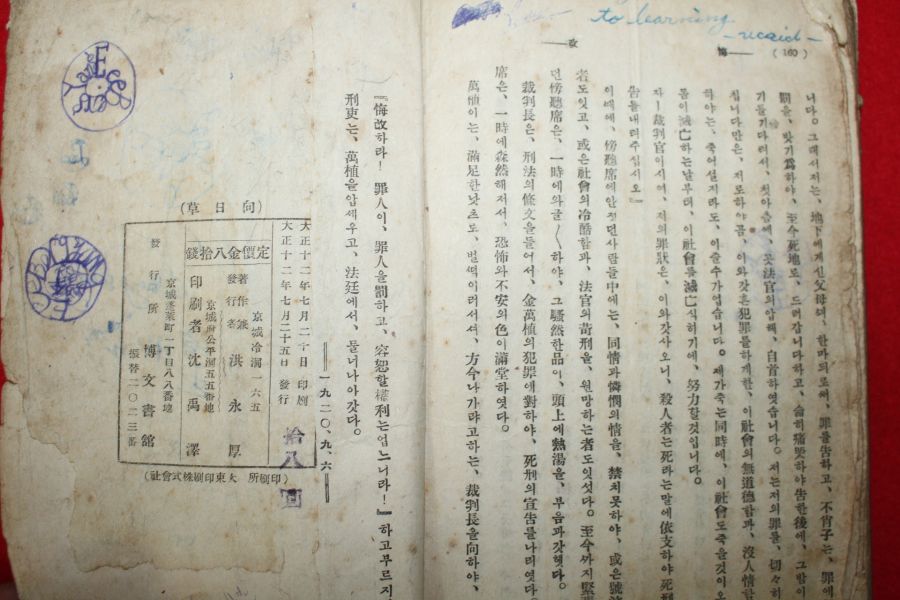 to learning
(160) 悔
改
니다。그래서저는、地下에게신父母며、한마듸로써、罪를告하고、不肖子는、罪에
罰을、밧기爲하야、至今死地로、드러갑니다하고、哀히痛哭하야告한後에、그밤이
기를기다려서、첫아츰에、곳法官의압헤、自首하엿습니다。저는저의罪를、切々히
십니다만은、저로하야곰、이와갓흔犯罪를하게한、이社會의無道德함과、沒人情함
하야는、죽어설지라도、이즐수가업습니다。제가죽는同時에、이社會도죽을것이오
몸이滅亡하는날부터、이社會를滅亡식히기에、努力할것입니다。
자―裁判官이시여、저의罪狀은、이와갓사오니、殺人者는死라는말에依支하야死刑
告를내려주십시오』
이때에、傍聽席에안젓던사람들中에는、同情과憐憫의情을、禁치못하야、或은號泣
者도잇고、或은社會의冷酷함과、法官의苛刑을、원망하는者도잇섯다。至今까지緊張
던傍聽席은、一時에와글〱하야、그騷然한品이、頭上에熱湯을、부음과갓헷다。
裁判長은、刑法의條文을들어서、金萬植의犯罪에對하야、死刑의宣告를나려엿다。
席은、一時에森然해저서、恐怖와不安의色이滿堂하엿다。
萬植이는、滿足한낫츠로、벌떡이러서서、方今나가랴고하는、裁判長을向하야、
『悔改하라! 罪人이、罪人을罰하고、容恕할權利는업느니라!』하고부르지
刑吏는、萬植을압세우고、法廷에서、물너나아갓다。
―一九二〇、九、六―
大正十二年七月二十日 印刷
大正十二年七月二十五日 發行
(向日草)
定價金八拾錢
京城冷洞一六五
著作兼發行者 洪永厚
京城府公平洞五五番地
印刷者 沈禹澤
京城蓬萊町一丁目八八番地
發行所 博文書館
振替二〇二三番
(印刷所 大東印刷株式會社)
拾八圓